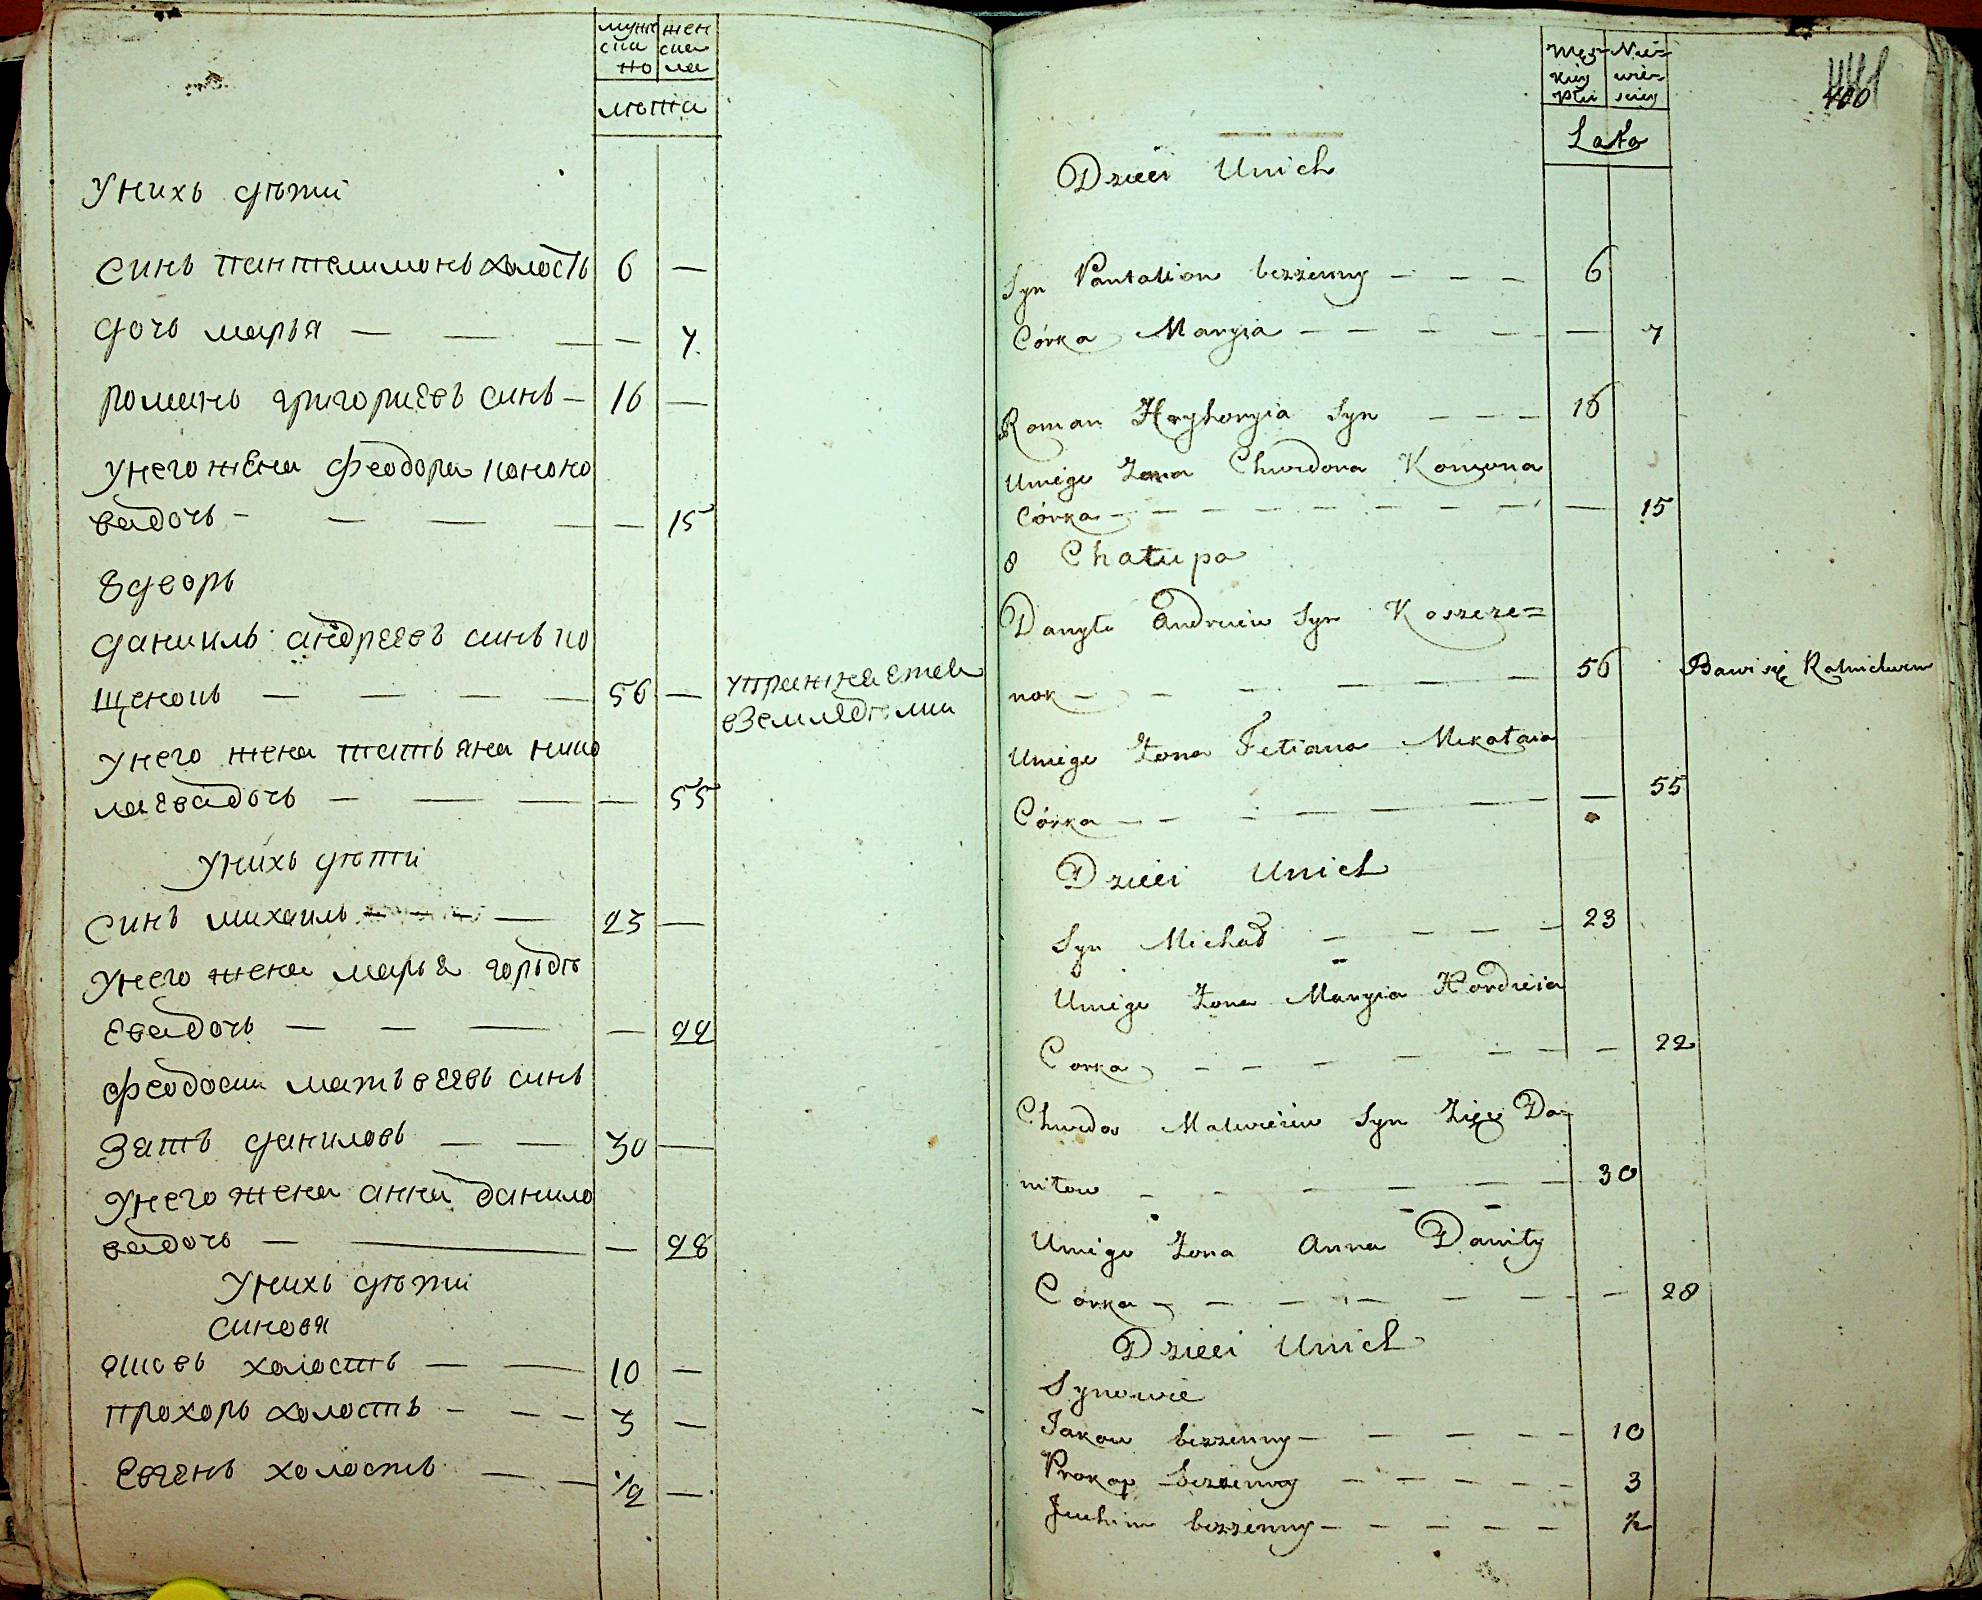 муж жен
ска ска
го ла
лѣта
У нихъ дѣти
синъ пантелимонъ холостъ 6 —
дочь марья — — — — 7
романъ григориевъ синъ — 16 —
унего жена феодора кононо
ва дочь — — — — — 15
8 дворъ
даниилъ андреевъ синъ ко
щенокъ — — — — 56 — упражняется
в земледѣлии
унего жена татьяна нико
лаева дочь — — — — 55
унихъ дѣти
синъ михаилъ — 23 —
унего жена марья гордѣ
ева дочь — — — — 22
феодосии матьвеевъ синъ
зять даниловъ — — 30 —
унего жена анна данило
ва дочь — — — 28
унихъ дѣти
синовя
яковъ холостъ — — 10 —
прохоръ холостъ — — — 3 —
евгенъ холостъ — — 1/2 —
Męs- Nie-
kiey wie-
Płci sciey
Lata
400
Dzieci Unich
Syn Pantalion bezżenny — — — 6
Córka Maryia — — — — — — 7
Roman Hryhoryia Syn — — — 16
Uniego Żona Chwedora Konona
Córka — — — — — — — — 15
8 Chałupa
Danyło Andreiew Syn Koszcze=
nok — — — — — — 56 Bawi się Rolnictwem
Uniego Żona Tetiana Mikołaia
Córka — — — — — — — 55
Dzieci Unich
Syn Michał — — — — 23
Uniego Żona Maryia Hordieia
Corka — — — — — — — 22
Chwedos Matwieiew Syn Zięć Da-
niłow — — — — — — 30
Uniego Żona Anna Daniły
Corka — — — — — — — 28
Dzieci Unich
Synowie
Jakow bezżenny — — — — — 10
Prokop bezżenny — — — — — 3
Juchim bezżenny — — — — — ½